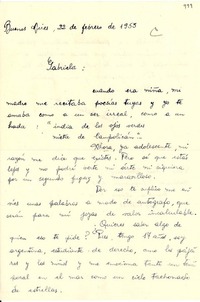 999
Buenos Aires, 22 de febrero de 1955
C
Gabriela:
cuando era niña, mi
madre me recitaba poesías tuyas y yo te
amaba como a un ser irreal, como a un
hada: "india de los ojos verdes
nieta de
Ahora, ya adolescente, mi
razón me dice que existes. Pero sé que estás
lejos y no podré oírte ni
por un segundo fugaz y maravilloso.
Por eso te suplico me en
víes unas palabras a modo de autógrafo, que
serán para mí joyas de valor invalorable.
¿Quieres saber algo de
quien eso te pide? Pues tengo 17 años, soy
argentina, estudiante de derecho, amo los pája
ros y los niños y me emociona tanto un tem
poral en el mar como un cielo
estrellas.